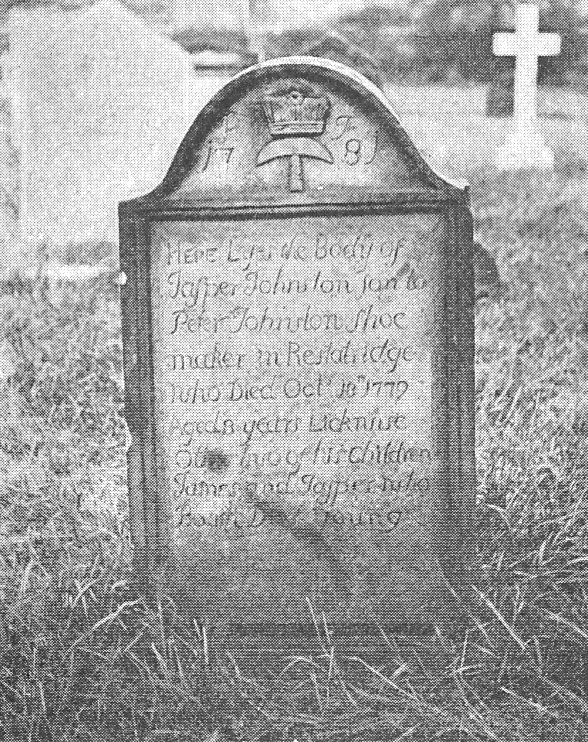 F F
17 81
Here Lys the Body of
Jasper Johnston son to
Peter Johnston shoe
maker in Restalridge
who Died Octr 18th 1779
Aged 8 years Licknise
Other two of his children
James and Jasper who
Both Died Young